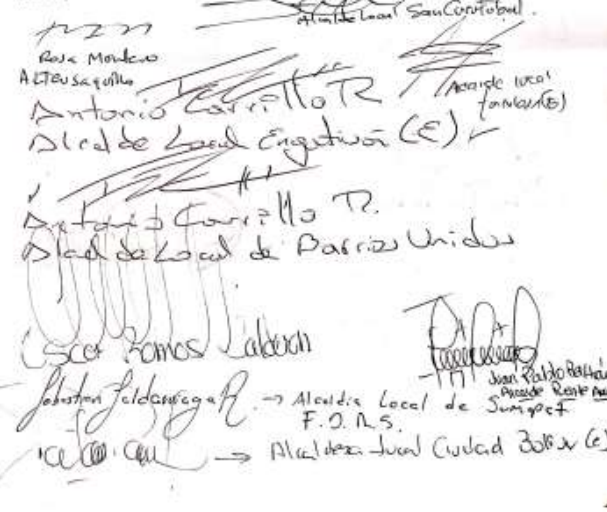 Alcalde Local San Cristobal.
Rosa Montero
Alcalde local
Antonio Carrillo R
Alcalde Local Engativá (E)
Antonio Carrillo R.
Alcalde Local de Barrios Unidos
Oscar Ramos Calderón
Juan Pablo Beltrán
Alcalde
Sebastian Saldarriaga R. → Alcaldia Local de Sumapaz
F.D.R.S.
→ Alcaldesa Local Ciudad Bolívar (e)